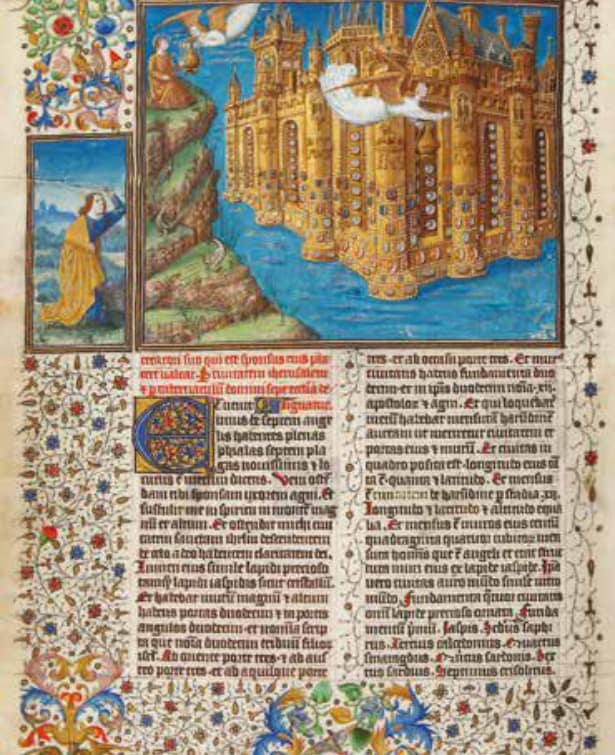 suo qui est sponsus eius pla
cere valeat. ciuitatem iherusalem
domini sepe ecclesia de
Et uenit signatur
unus de septem ange
lis habentes plenas
phialas septem pla
gas nouissimas et lo
cutus e mecum dicens. Veni oste
dam tibi sponsam uxorem agni. Et
sustulit me in spiritu in monte mag
nu et altum. Et ostendit michi ciui
tatem sanctam ihrlm descendentem
de celo a deo habentem claritatem dei.
Lumen eius simile lapidi precioso
tamq lapidi iaspidis sicut cristallu.
Et habebat muru magnu et altum
habens portas duodecim et in portis
angulos duodecim et nomina scrip
ta que nota duodecim tribuu filior
isrl. Ab oriente porte tres et ab aus
tro porte tres et ab aquilone porte
tres et ab occasu porte tres. Et mur
ciuitatis habens fundamenta duo
decim et in ipis duodecim noia xii
apostolor et agni. Et qui loquebat
mecu habebat mensura harundine
auream ut metiretur ciuitatem et
portas eius et muru. Et ciuitas in
quadro posita est longitudo eius
quanta et latitudo. Et mensus
e ciuitatem de harundine p stadia xii.
Longitudo et latitudo et altitudo equa
lia. Et mensus e muros eius centu
quadraginta quatuor cubitor men
sura hominis que e angeli et erat struc
tura muri eius ex lapide iaspide. Ipa
uero ciuitas auro mundo simile uitro
mundo. Fundamenta muri ciuitatis
omni lapide precioso ornata. Funda
mentu primu Iaspis. Scdus saphi
rus. Tercius calcedonius. Quartus
smaragdus. Quintus sardonix. Sex
tus sardius. Septimus crisolitus.